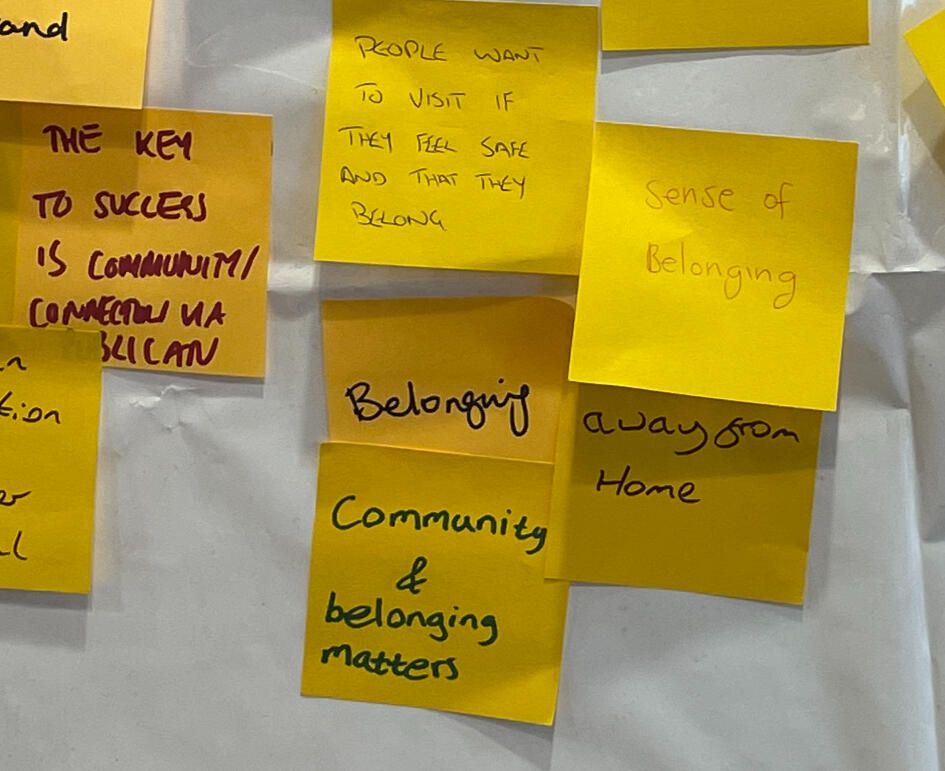 and
THE KEY
TO SUCCESS
IS COMMUNITY/
CONNECTION VIA
PUBLICAN
PEOPLE WANT
TO VISIT IF
THEY FEEL SAFE
AND THAT THEY
BELONG
Sense of
Belonging
Belonging
away from
Home
Community
&
belonging
matters